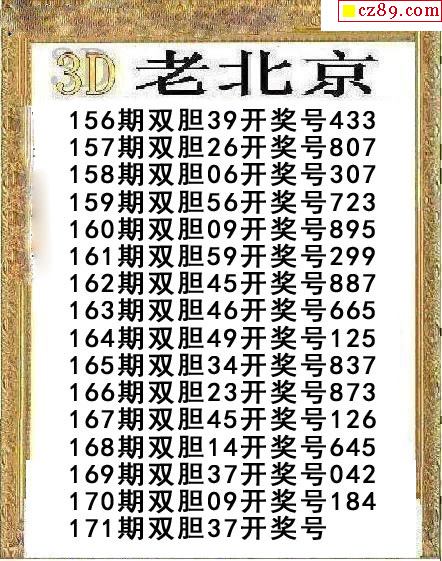 cz89.com
3D 老北京
156期双胆39开奖号433
157期双胆26开奖号807
158期双胆06开奖号307
159期双胆56开奖号723
160期双胆09开奖号895
161期双胆59开奖号299
162期双胆45开奖号887
163期双胆46开奖号665
164期双胆49开奖号125
165期双胆34开奖号837
166期双胆23开奖号873
167期双胆45开奖号126
168期双胆14开奖号645
169期双胆37开奖号042
170期双胆09开奖号184
171期双胆37开奖号